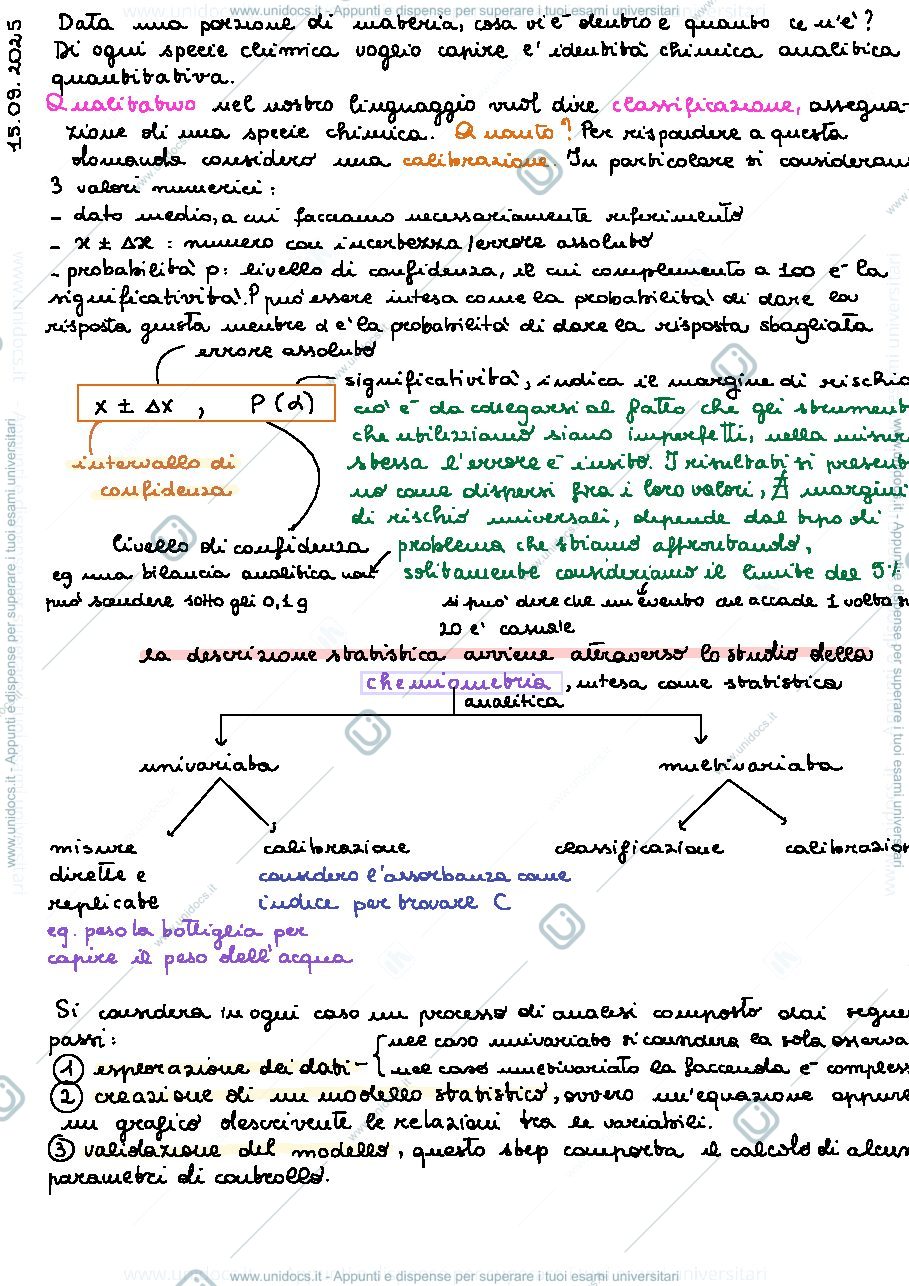 www.unidocs.it - Appunti e dispense per superare i tuoi esami universitari
15.09.2025
Data una porzione di materia, cosa vi è dentro e quanto ce n'è?
Di ogni specie chimica voglio capire l'identità chimica analitica
quantitativa.
Qualitativo nel nostro linguaggio vuol dire classificazione, assegna-
zione di una specie chimica. Quanto? Per rispondere a questa
domanda considero una calibrazione. In particolare si consideran
3 valori numerici:
- dato medio, a cui facciamo necessariamente riferimento
- x ± Δx : numero con incertezza/errore assoluto
- probabilità p: livello di confidenza, il cui complemento a 100 è la
significatività. P può essere intesa come la probabilità di dare la
risposta giusta mentre α è la probabilità di dare la risposta sbagliata
errore assoluto
x ± Δx , P(α)
intervallo di
confidenza
significatività, indica il margine di rischio
ciò è da collegarsi al fatto che gli strument
che utilizziamo siano imperfetti, nella misur
stessa l'errore è insito. I risultati si present
no come dispersi fra i loro valori, ∄ margini
di rischio universali, dipende dal tipo di
problema che stiamo affrontando,
solitamente consideriamo il limite del 5%
livello di confidenza
eg una bilancia analitica non
può scendere sotto gli 0,1g
si può dire che un evento che accade 1 volta s
20 è casuale
la descrizione statistica avviene attraverso lo studio della
chemiometria, intesa come statistica
analitica
univariata
multivariata
misure
dirette e
replicate
eg. peso la bottiglia per
capire il peso dell'acqua
calibrazione
considero l'assorbanza come
indice per trovare C
classificazione
calibrazion
Si considera in ogni caso un processo di analisi composto dai segue
passi:
① esplorazione dei dati - { nel caso univariato si considera la sola osserva
nel caso multivariato la faccenda è compless
② creazione di un modello statistico, ovvero un'equazione oppure
un grafico descrivente le relazioni tra le variabili.
③ validazione del modello, questo step comporta il calcolo di alcun
parametri di controllo.
www.unidocs.it - Appunti e dispense per superare i tuoi esami universitari